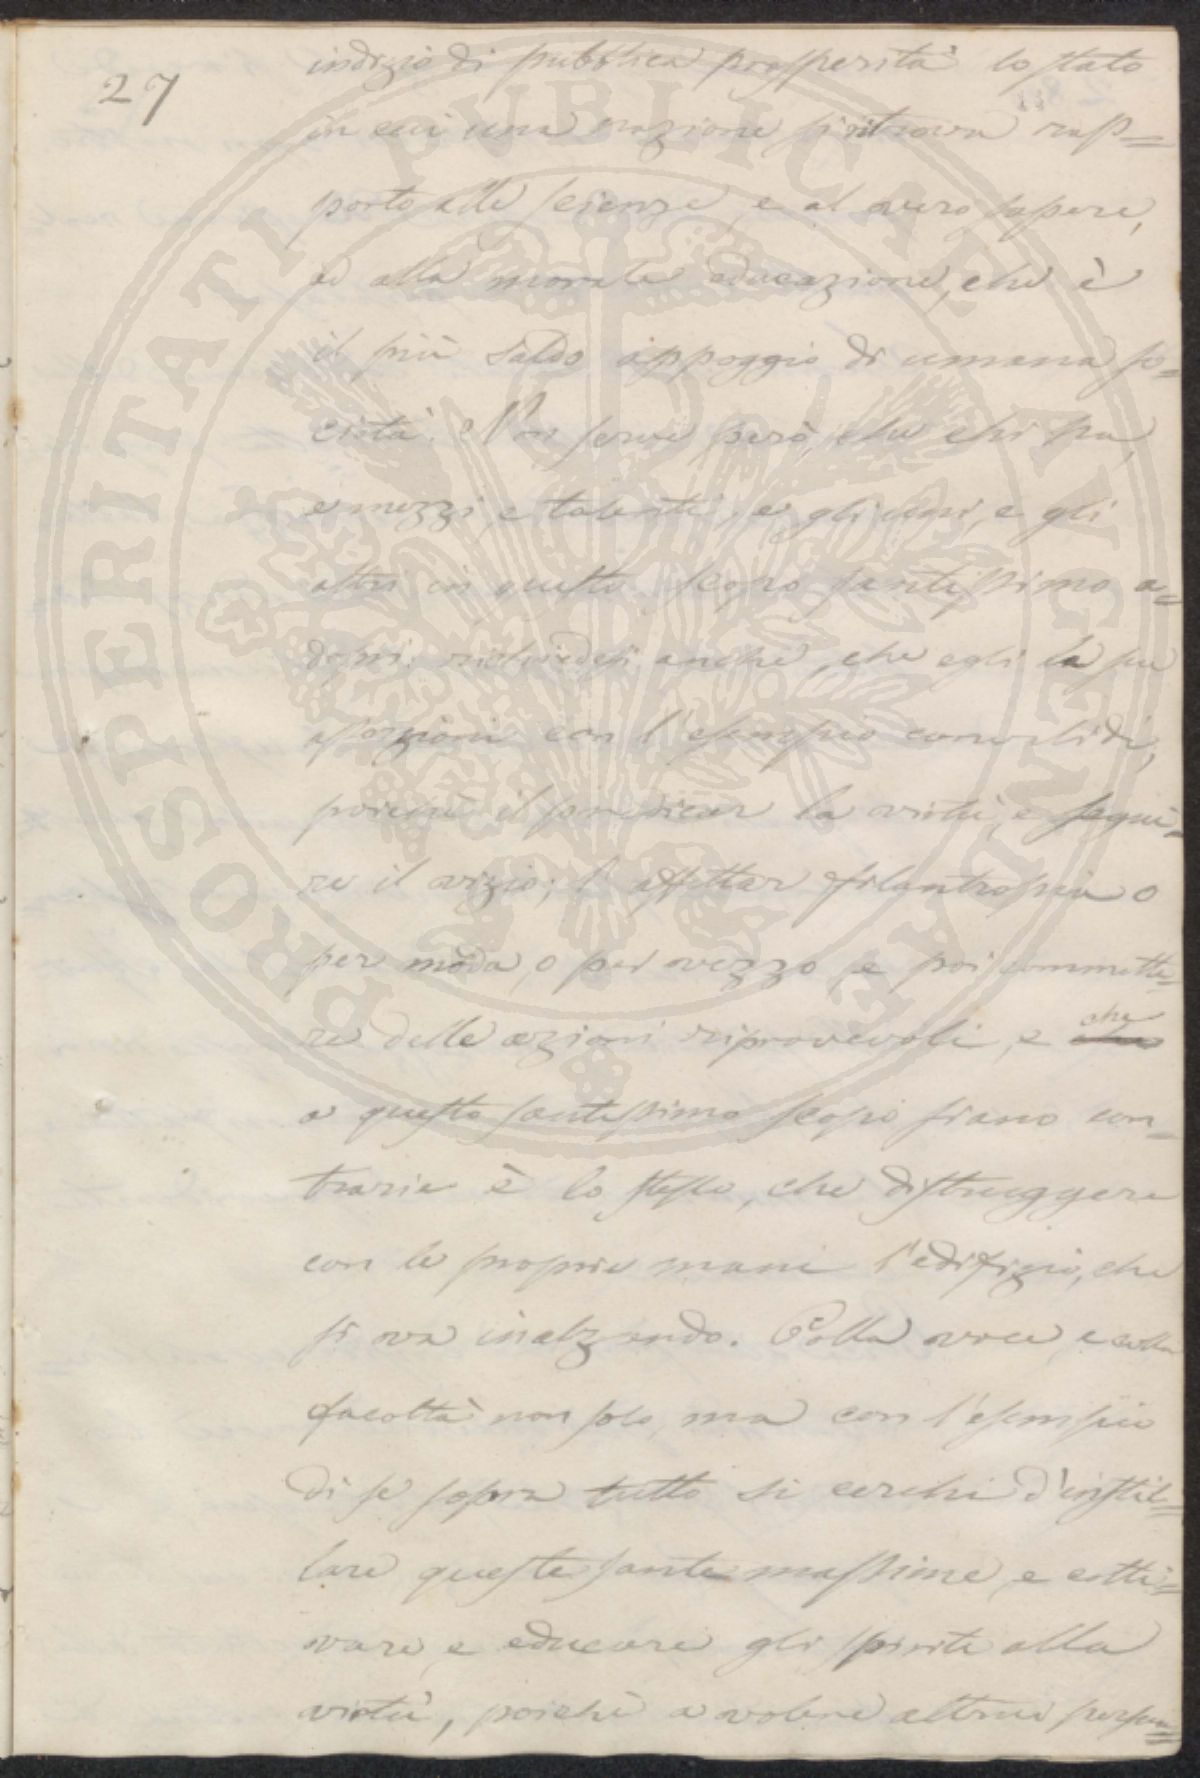 27
indizio di pubblica prosperità lo stato
in cui una nazione si ritrova rap=
porto alle scienze, e al vero sapere,
ed alla morale educazione, che è
il più saldo appoggio di umana so=
cietà. Non serve però, che chi ha,
e mezzi, e talenti, e gli uni, e gli
altri in questo scopo santissimo a=
dopri: richiedesi anche, che egli le sue
asserzioni con l'esempio convalidi,
poichè il predicar la virtù, e segui=
re il vizio; l'affettar filantropia o
per moda, o per vezzo, e poi commette=
re delle azioni riprovevoli, e che
a questo santissimo scopo siano con=
trarie è lo stesso, che distruggere
con le proprie mani l'edifizio, che
si va inalzando. Colla voce, e colla
facoltà non solo, ma con l'esempio
di se sopra tutto si cerchi d'instil=
lare queste sante massime, e colti=
vare, e educare gli spiriti alla
virtù, poichè a volere altrui persua=
PROSPERITATI PUBLICAE AUGENDAE